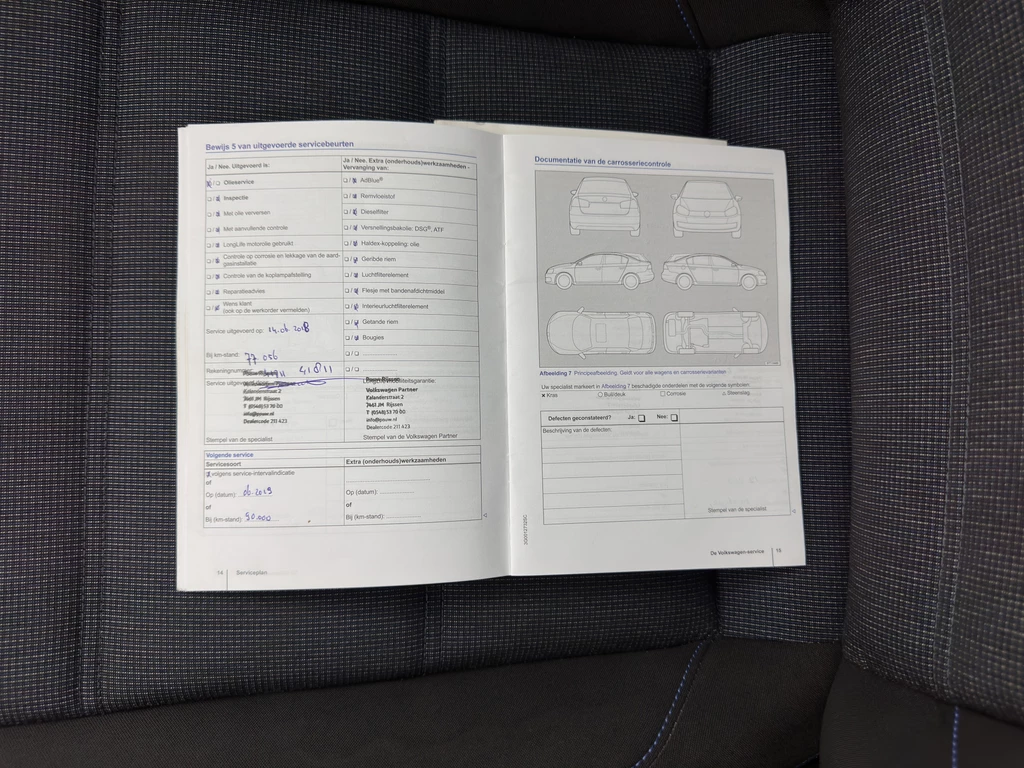 Bewijs 5 van uitgevoerde servicebeurten
Ja / Nee. Uitgevoerd is:
Olieservice
Inspectie
Met olie verversen
Met aanvullende controle
LongLife motorolie gebruikt
Controle op corrosie en lekkage van de aard-
gasinstallatie
Controle van de koplampafstelling
Reparatieadvies
Wens klant
(ook op de werkorder vermelden)
Service uitgevoerd op: 14.06 2018
Bij km-stand: 77 056
Rekeningnummer: 41811
Service uitgevoerd
Kalanderstraat 2
7461 JM Rijssen
T (0548) 53 70 00
info@pouw.nl
Dealercode 211 423
Stempel van de specialist
Ja / Nee. Extra (onderhouds)werkzaamheden -
Vervanging van:
AdBlue®
Remvloeistof
Dieselfilter
Versnellingsbakolie: DSG®, ATF
Haldex-koppeling: olie
Geribde riem
Luchtfilterelement
Flesje met bandenafdichtmiddel
Interieurluchtfilterelement
Getande riem
Bougies
Pouw Rijssen
Volkswagen Partner
Kalanderstraat 2
7461 JM Rijssen
T (0548) 53 70 00
info@pouw.nl
Dealercode 211 423
Stempel van de Volkswagen Partner
Volgende service
Servicesoort
volgens service-intervalindicatie
of
Op (datum): 06-2019
of
Bij (km-stand): 90.000
Extra (onderhouds)werkzaamheden
Op (datum):
of
Bij (km-stand):
14 Serviceplan
Documentatie van de carrosseriecontrole
Afbeelding 7 Principeafbeelding: Geldt voor alle wagens en carrosserievarianten
Uw specialist markeert in Afbeelding 7 beschadigde onderdelen met de volgende symbolen:
× Kras ○ Buil/deuk □ Corrosie ▵ Steenslag
Defecten geconstateerd? Ja: Nee:
Beschrijving van de defecten:
Stempel van de specialist
De Volkswagen-service 15